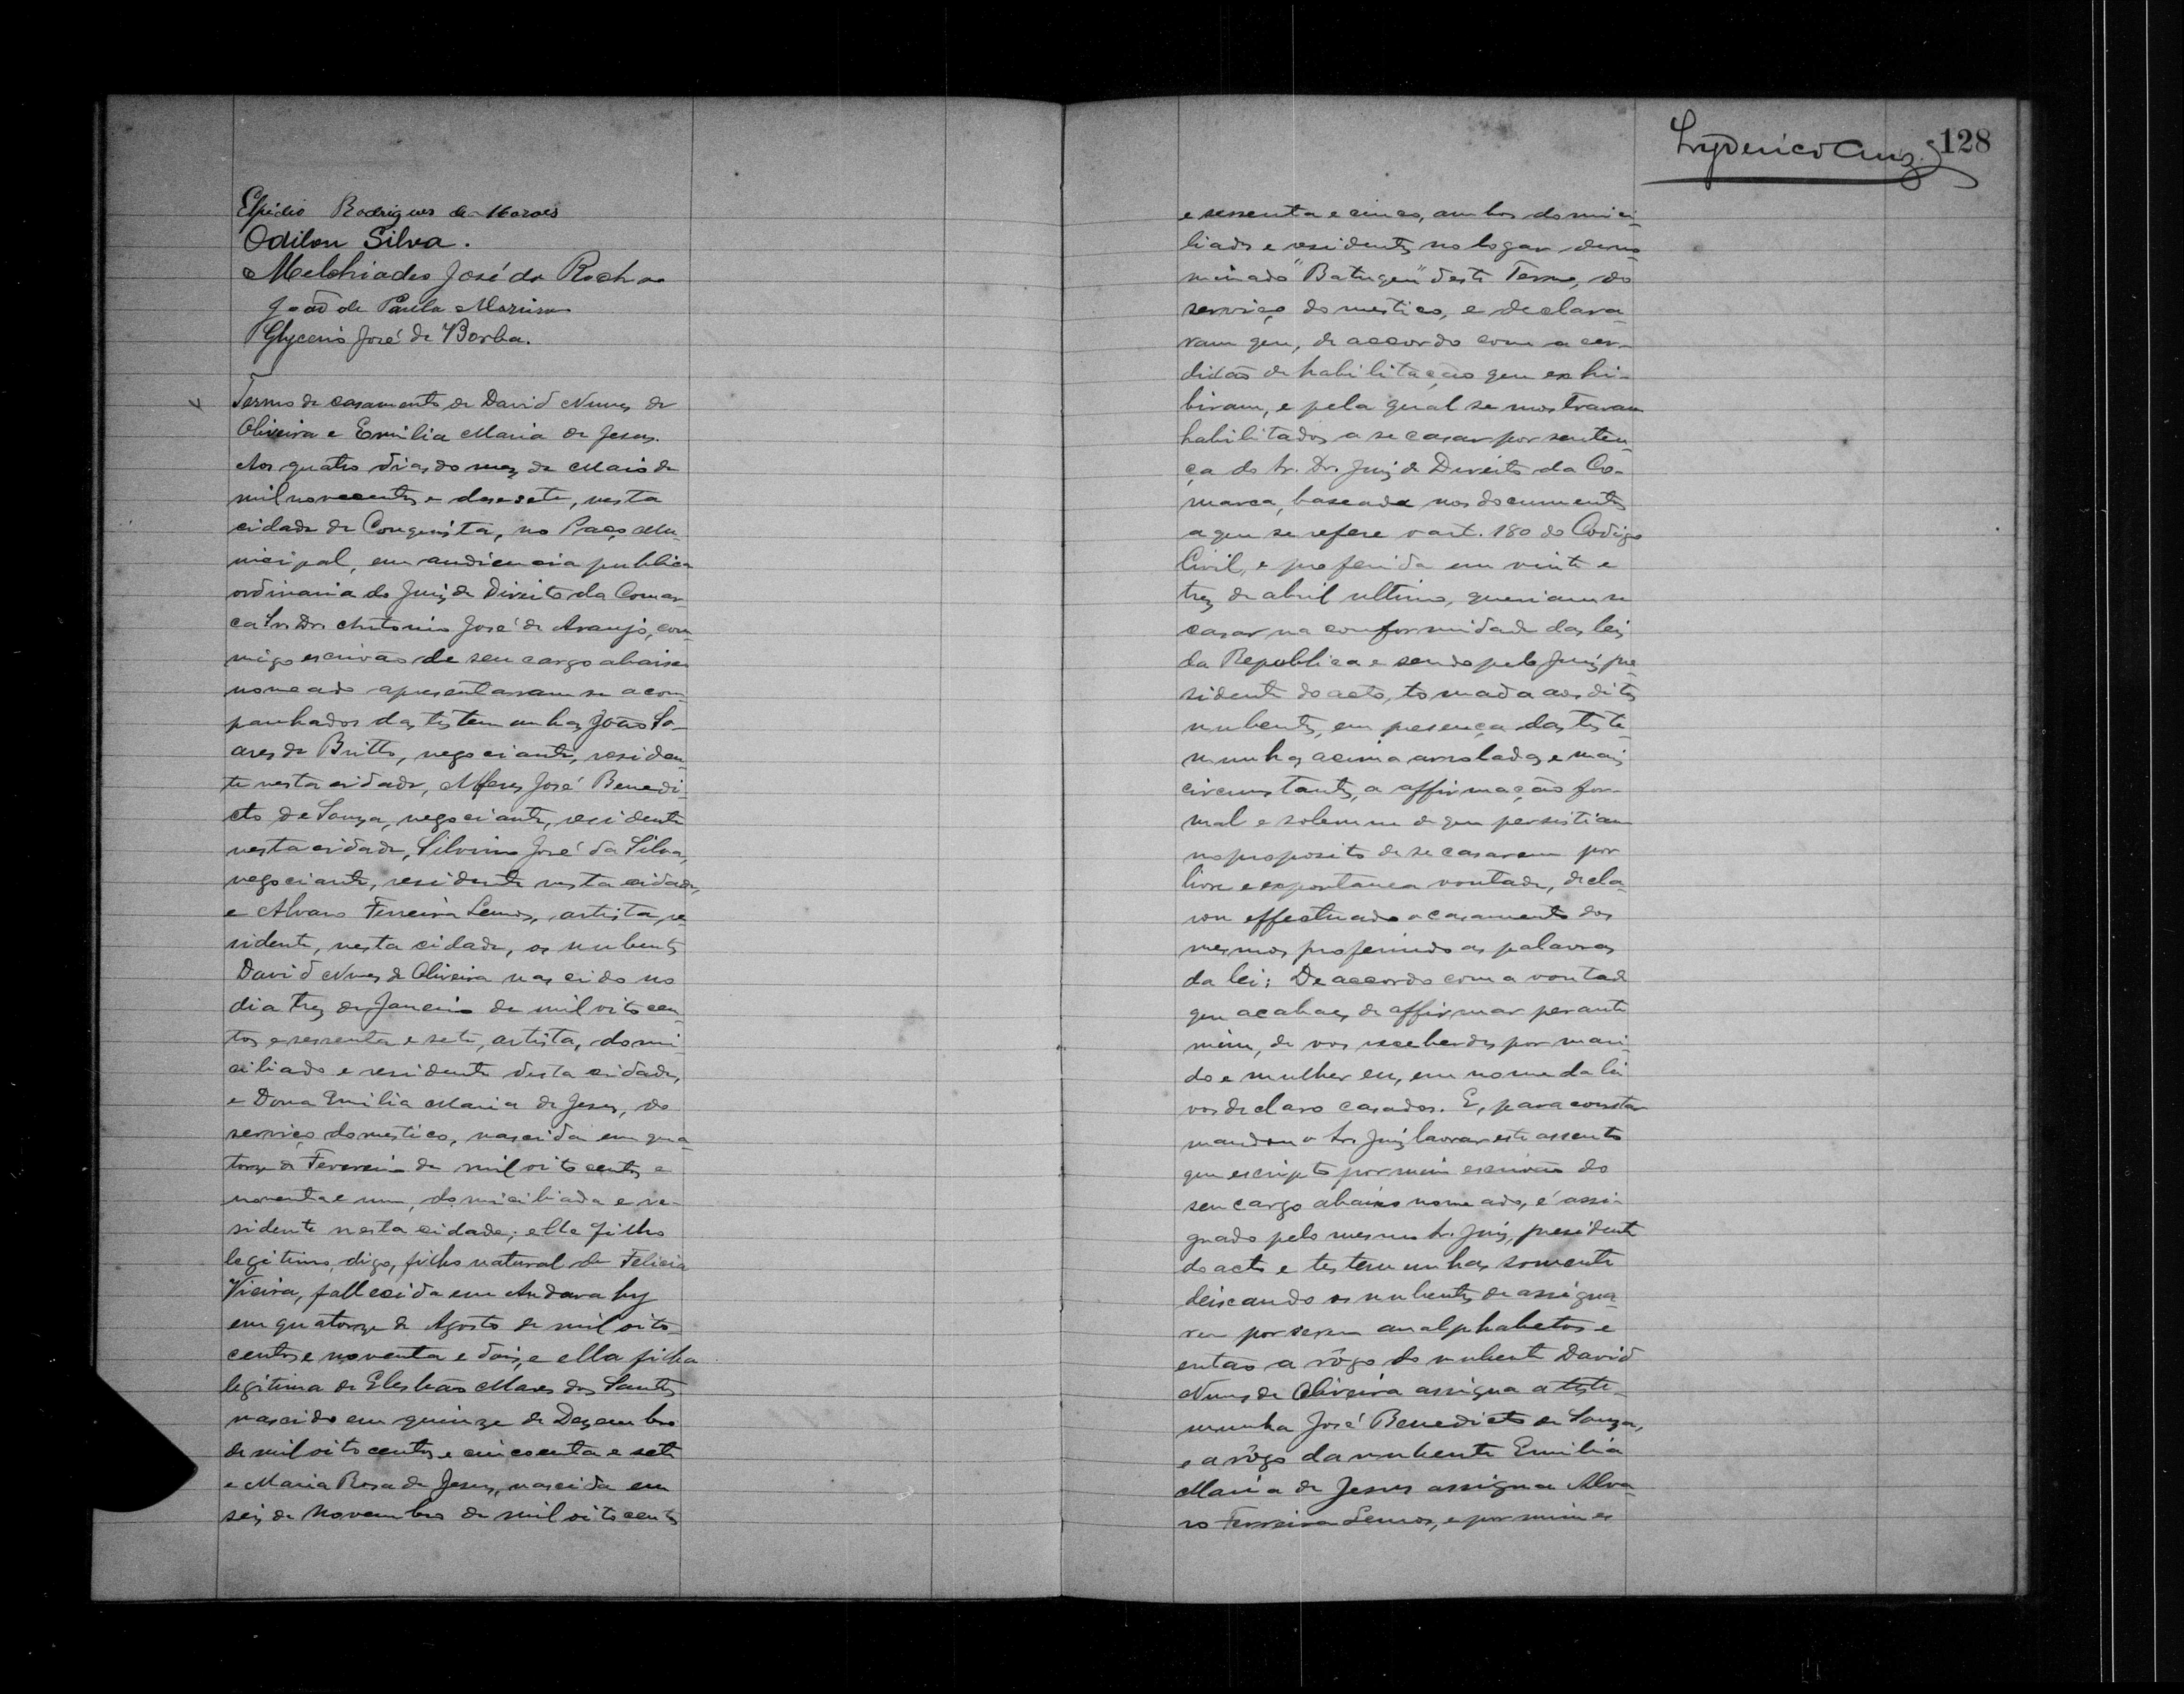 Elpidio Rodrigues de Moraes
Odilon Silva.
Melchiades José da Rocha
João de Paula Moreira
Glycerio José de Borba.
Termo de casamento de David Nunes de
Oliveira e Emilia Maria de Jesus.
Aos quatro dias do mez de Maio de
mil novecentos e desesete, nesta
cidade de Conquista, no Paço Mu-
nicipal, em audiencia publica
ordinaria do Juiz de Direito da Comar-
ca Sr. Dr. Antonio José de Araujo, com-
migo escrivão de seu cargo abaixo
nomeado apresentaram se acom-
panhados das testemunhas João So-
ares de Britto, negociante, residen-
te nesta cidade, Alferes José Benedi-
cto de Souza, negociante, residente
nesta cidade, Silvino José da Silva,
negociante, residente nesta cidade,
e Alvaro Ferreira Lemos, artista, re-
sidente, nesta cidade, os nubentes
David Nunes de Oliveira nascido no
dia trez de Janeiro de mil oito cen-
tos e sessenta e sete, artista, domi-
ciliado e residente desta cidade,
e Dona Emilia Maria de Jesus, do
serviço domestico, nascida em qua-
torze de Fevereiro de mil oito centos e
noventa e um, domiciliada e re-
sidente nesta cidade; elle filho
legitimo, digo, filho natural de Felicia
Vieira, fallecida em Andarahy
em quatorze de Agosto de mil oito
centos e noventa e dois, e ella filha
legitima de Elesbão Mares dos Santos
nascido em quinze de Dezembro
de mil oito centos e cincoenta e sete
e Maria Rosa de Jesus, nascida em
seis de Novembro de mil oito centos
Lyderico Cruz. 128
e sessenta e cinco, ambos domici-
liados e residentes no logar deno-
minado "Batuque" deste Termo, do
serviço domestico, e declara-
ram que, de accordo com a cer-
tidão de habilitação que exhi-
biram, e pela qual se mostraram
habilitados a se casar por senten-
ça do Sr. Dr. Juiz de Direito da Co-
marca, baseada nos documentos
a que se refere o art. 180 do Codigo
Civil, e proferida em vinte e
trez de abril ultimo, queriam se
casar na conformidade das leis
da Republica e sendo pelo Juiz pre-
sidente do acto, tomada aos ditos
nubentes, em presença das teste-
munhas acima arroladas e mais
circumstantes, a affirmação for-
mal e solemne de que persistiam
no proposito de se casarem por
livre e expontanea vontade, decla-
rou effectuado o casamento dos
mesmos proferindo as palavras
da lei: De accordo com a vontade
que acabaes de affirmar perante
mim, de vos receberdes por mari-
do e mulher eu, em nome da lei
vos declaro casados. E, para constar
mandou o Sr. Juiz lavrar este assento
que escripto por mim escrivão do
seu cargo abaixo nomeado, é assi-
gnado pelo mesmo Sr. Juiz, presidente
do acto e testemunhas somente
deixando os nubentes de assigna-
rem por serem analphabetos e
então a rôgo do nubente David
Nunes de Oliveira assigna a teste-
munha José Benedicto de Souza,
e a rôgo da nubente Emilia
Maria de Jesus assigna Alva-
ro Ferreira Lemos, e por mim es